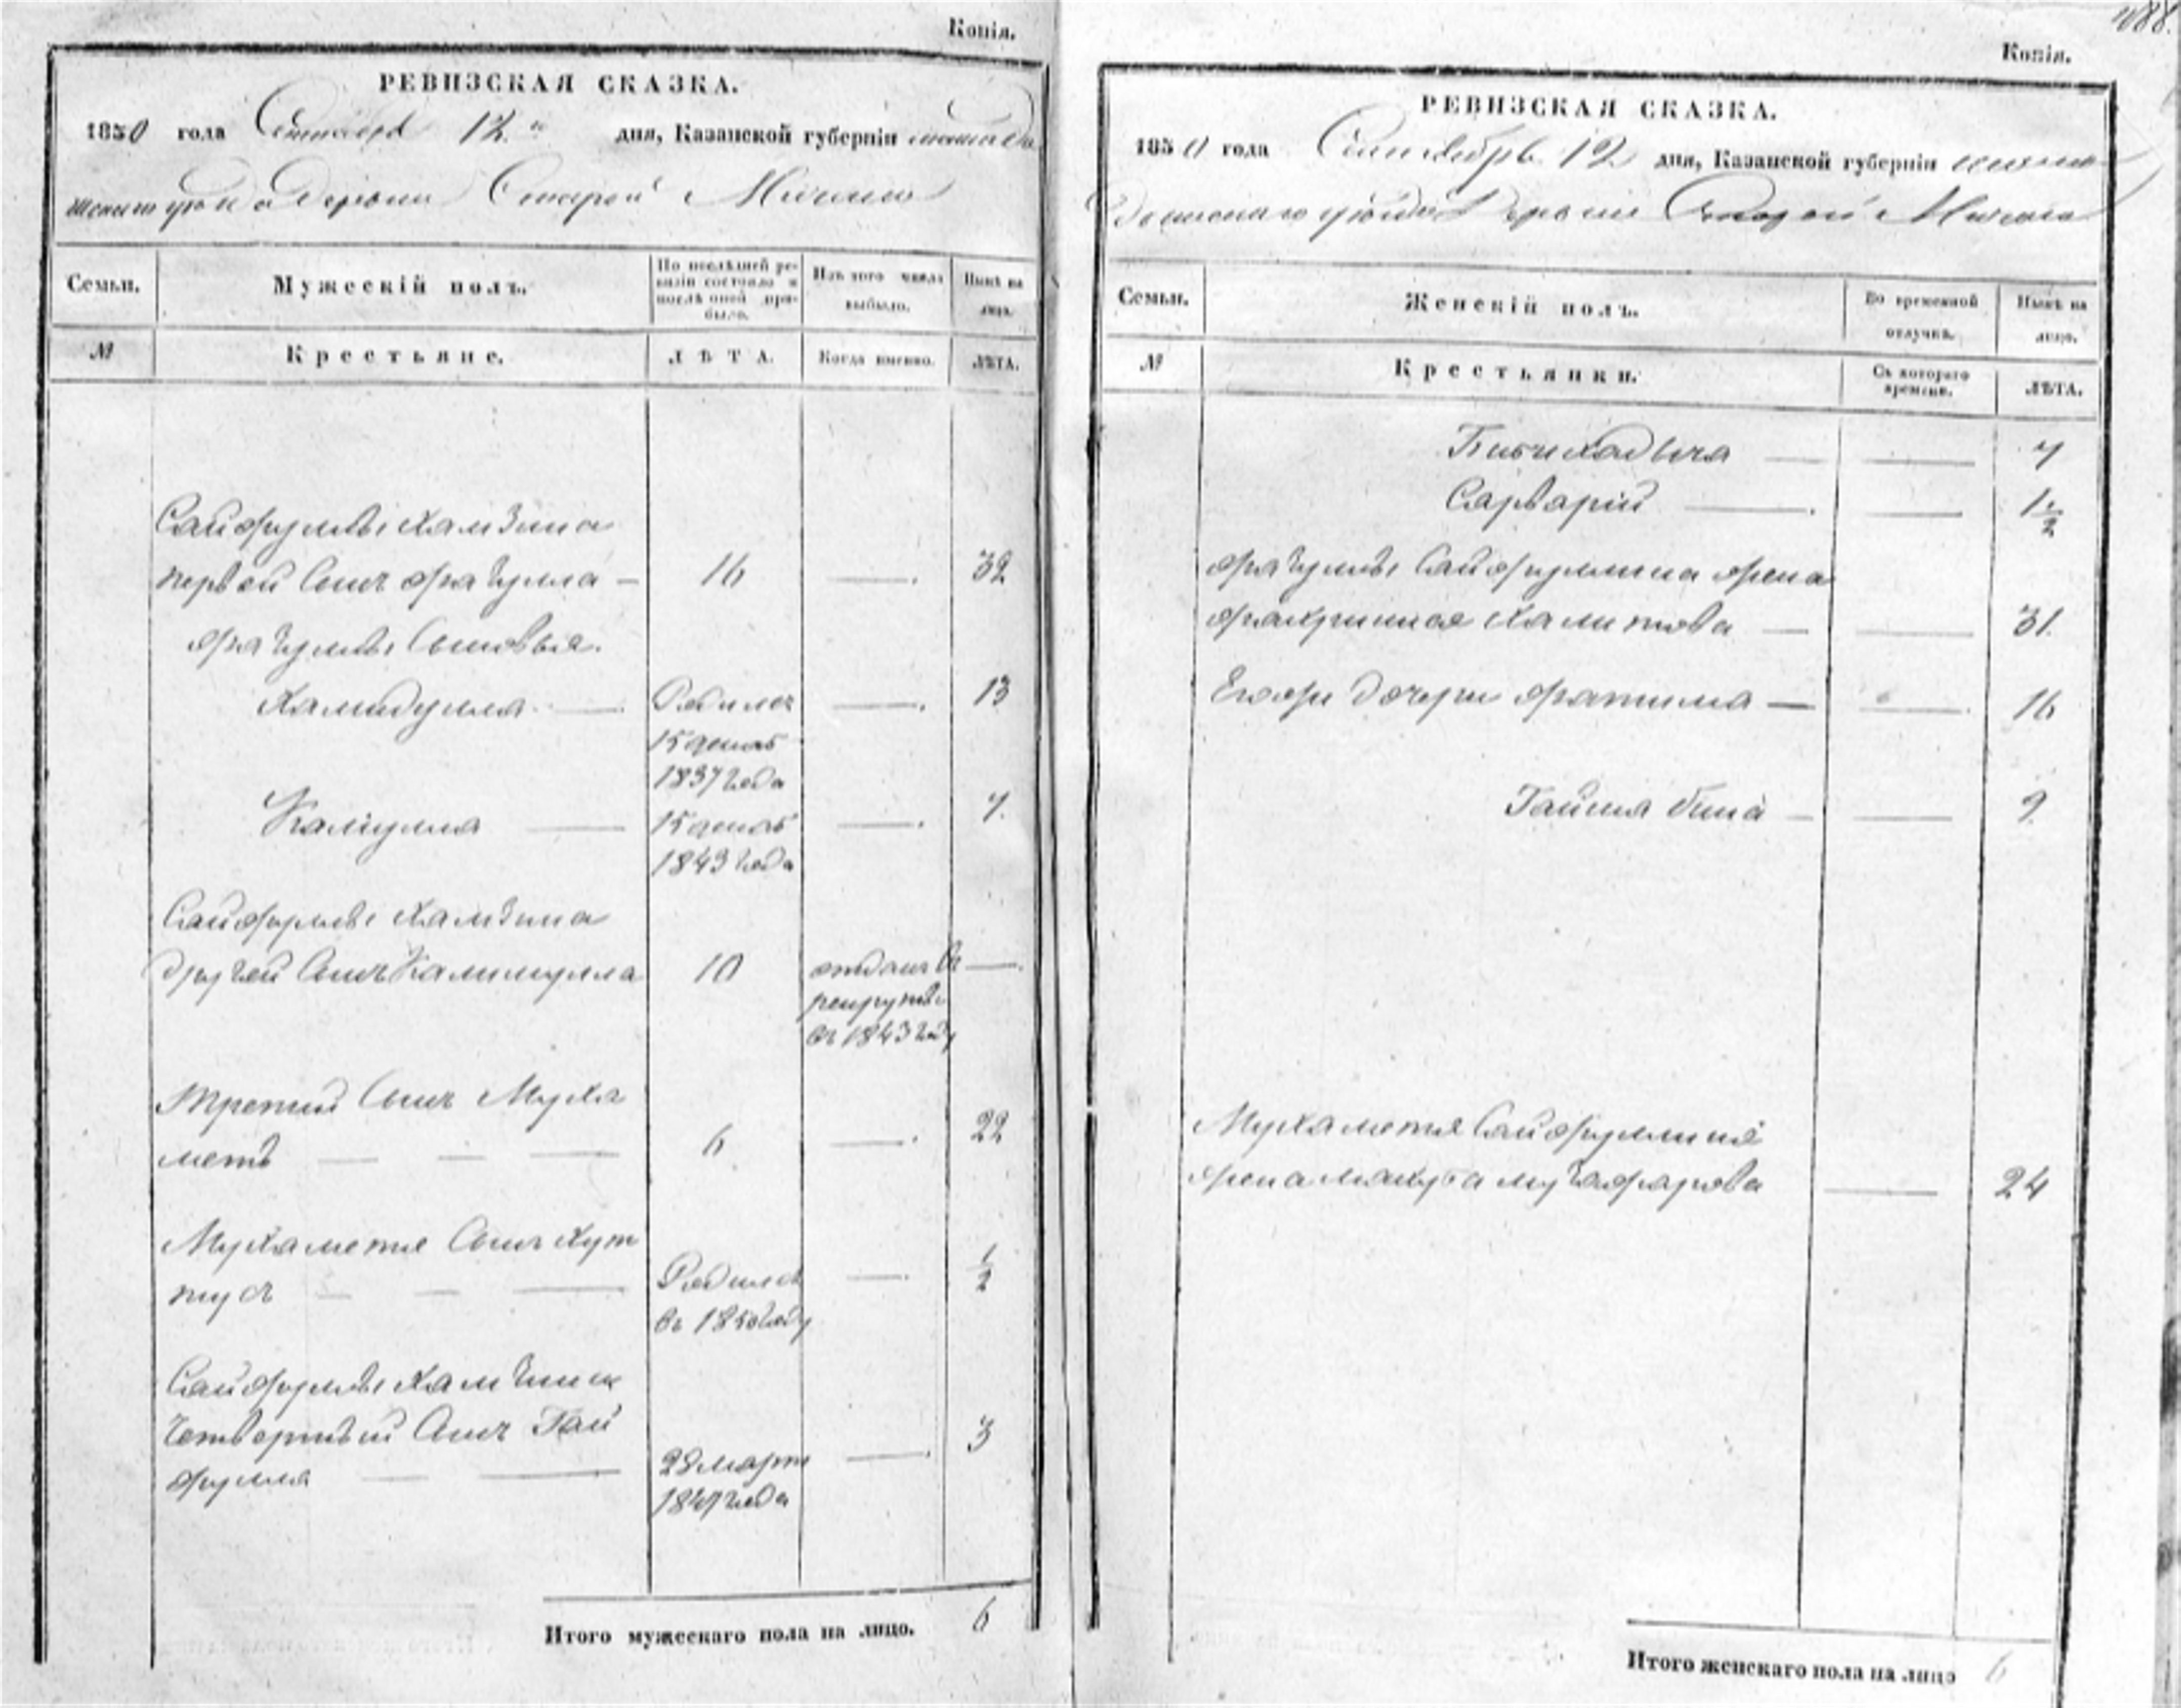 Копія.
РЕВИЗСКАЯ СКАЗКА.
1850 года Сентября 12 дня, Казанской губерніи мамады
шскаго уѣзда деревни Старой
Семьи.
Мужескій полъ.
По послѣдней ре-
визіи состояло и
послѣ оной при-
было.
Изъ того числа
выбыло.
Нынѣ на
лицо.
№
Крестьяне.
ЛѢТА.
Когда именно.
ЛѢТА.
Сайфуллы Хамзина
первой Сынъ Фазулла — 16 — 32
Фазуллы Сыновья.
Хамидулла — Родился — 13
15 генва
1837 года
Калиулла — 15 генва — 7
1843 года
Сайфуллы Хамзина
другой Сынъ Калимулла 10 отданъ въ —
рекруты
въ 1843 году
Третій Сынъ Муха
метъ — — — 6 — 22
Мухаметя Сынъ Хут
тусъ — — — Родился — 1/2
въ 1850 году
Сайфуллы Хамзина
Четвертый Сынъ Гай
фулла — — 28 март — 3
1847 года
Итого мужескаго пола на лицо. 6
1088.
Копія.
РЕВИЗСКАЯ СКАЗКА.
1850 года Сентябрь 12 дня, Казанской губерніи мама
дышскаго уѣзда Деревни Старой
Семьи.
Женскій полъ.
Во временной
отлучкѣ.
Нынѣ на
лицо.
№
Крестьянки.
Съ котораго
времени.
ЛѢТА.
Бибихадыча — — 7
Сарварій — — 1 1/2
Фазуллы Сайфуллина жена
Фахриниса Халитова — — 31.
Егожъ дочери Фатима — — 16
Гайша бина — — 9
Мухаметя Сайфуллина
жена музафарова — 24
Итого женскаго пола на лицо 6